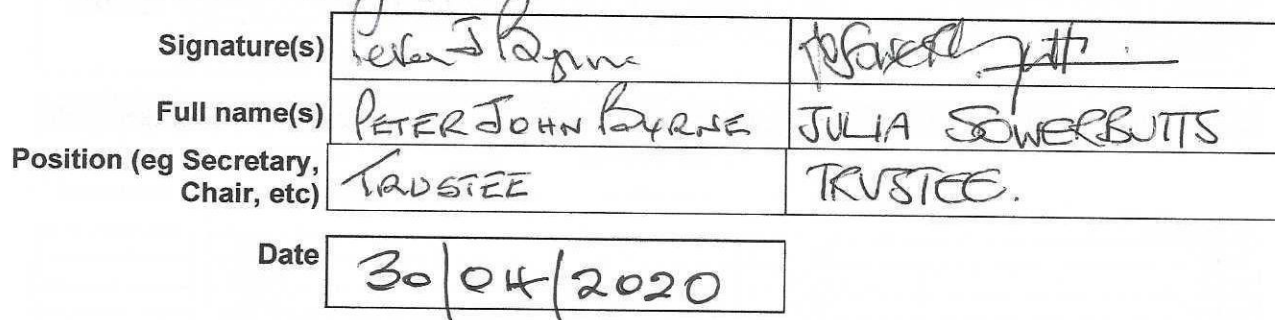 Signature(s) Peter J Byrne
Full name(s) PETER JOHN BYRNE JULIA SOWERBUTTS
Position (eg Secretary, Chair, etc) TRUSTEE TRUSTEE.
Date 30/04/2020